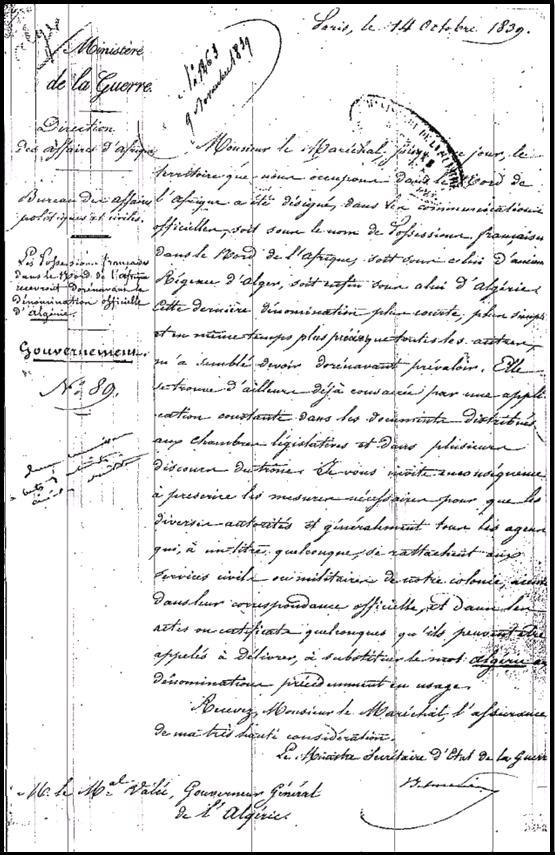 Paris, le 14 Octobre 1839.
Ministère
de la Guerre.
Nº 1463
9 Novembre 1839
Direction
des affaires d'Afrique
Bureau des affaires
politiques et civiles.
Les Possessions françaises
dans le Nord de l'Afrique
recevront dorénavant la
dénomination officielle
d'Algérie.
Gouvernement.
Nº 89.
Monsieur le Maréchal, jour, le
territoire que nous occupons dans le Nord de
l'Afrique a été désigné, dans les communications
officielles, soit sous le nom de Possessions françaises
dans le Nord de l'Afrique, soit sous celui d'ancienne
Régence d'Alger, soit enfin sous celui d'Algérie.
Cette dernière dénomination plus courte, plus simple
et en même temps plus précise que toutes les autres,
m'a semblé devoir dorénavant prévaloir. Elle
se trouve d'ailleurs déjà consacrée par une appli-
cation constante dans les documents distribués
aux chambres législatives et dans plusieurs
discours du trône. Je vous invite en conséquence
à prescrire les mesures nécessaires pour que les
diverses autorités et généralement tous les agens
qui, à un titre quelconque, se rattachent aux
services civils ou militaires de notre colonie, aient
dans leur correspondance officielle, et dans les
actes ou certificats quelconques qu'ils peuvent être
appelés à délivrer, à substituer le mot Algérie aux
dénominations précédemment en usage.
Recevez, Monsieur le Maréchal, l'assurance
de ma très haute considération.
Le Ministre Secrétaire d'Etat de la Guerre
M. le Mal Valée, Gouverneur Général
de l'Algérie.